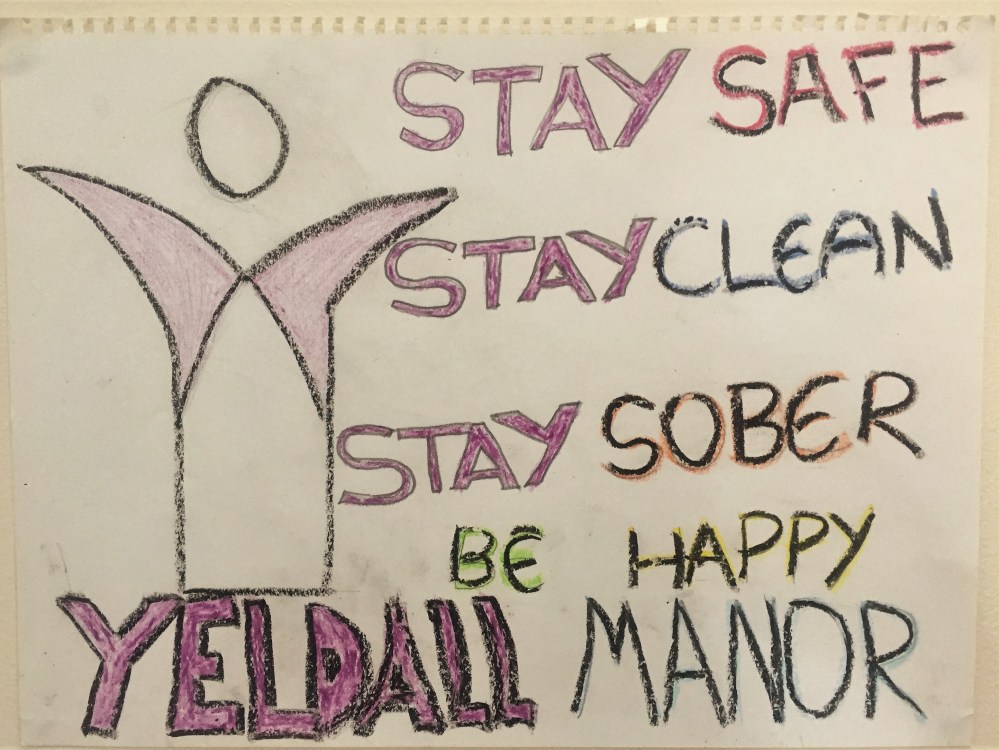 STAY SAFE
STAY CLEAN
STAY SOBER
BE HAPPY
YELDALL MANOR